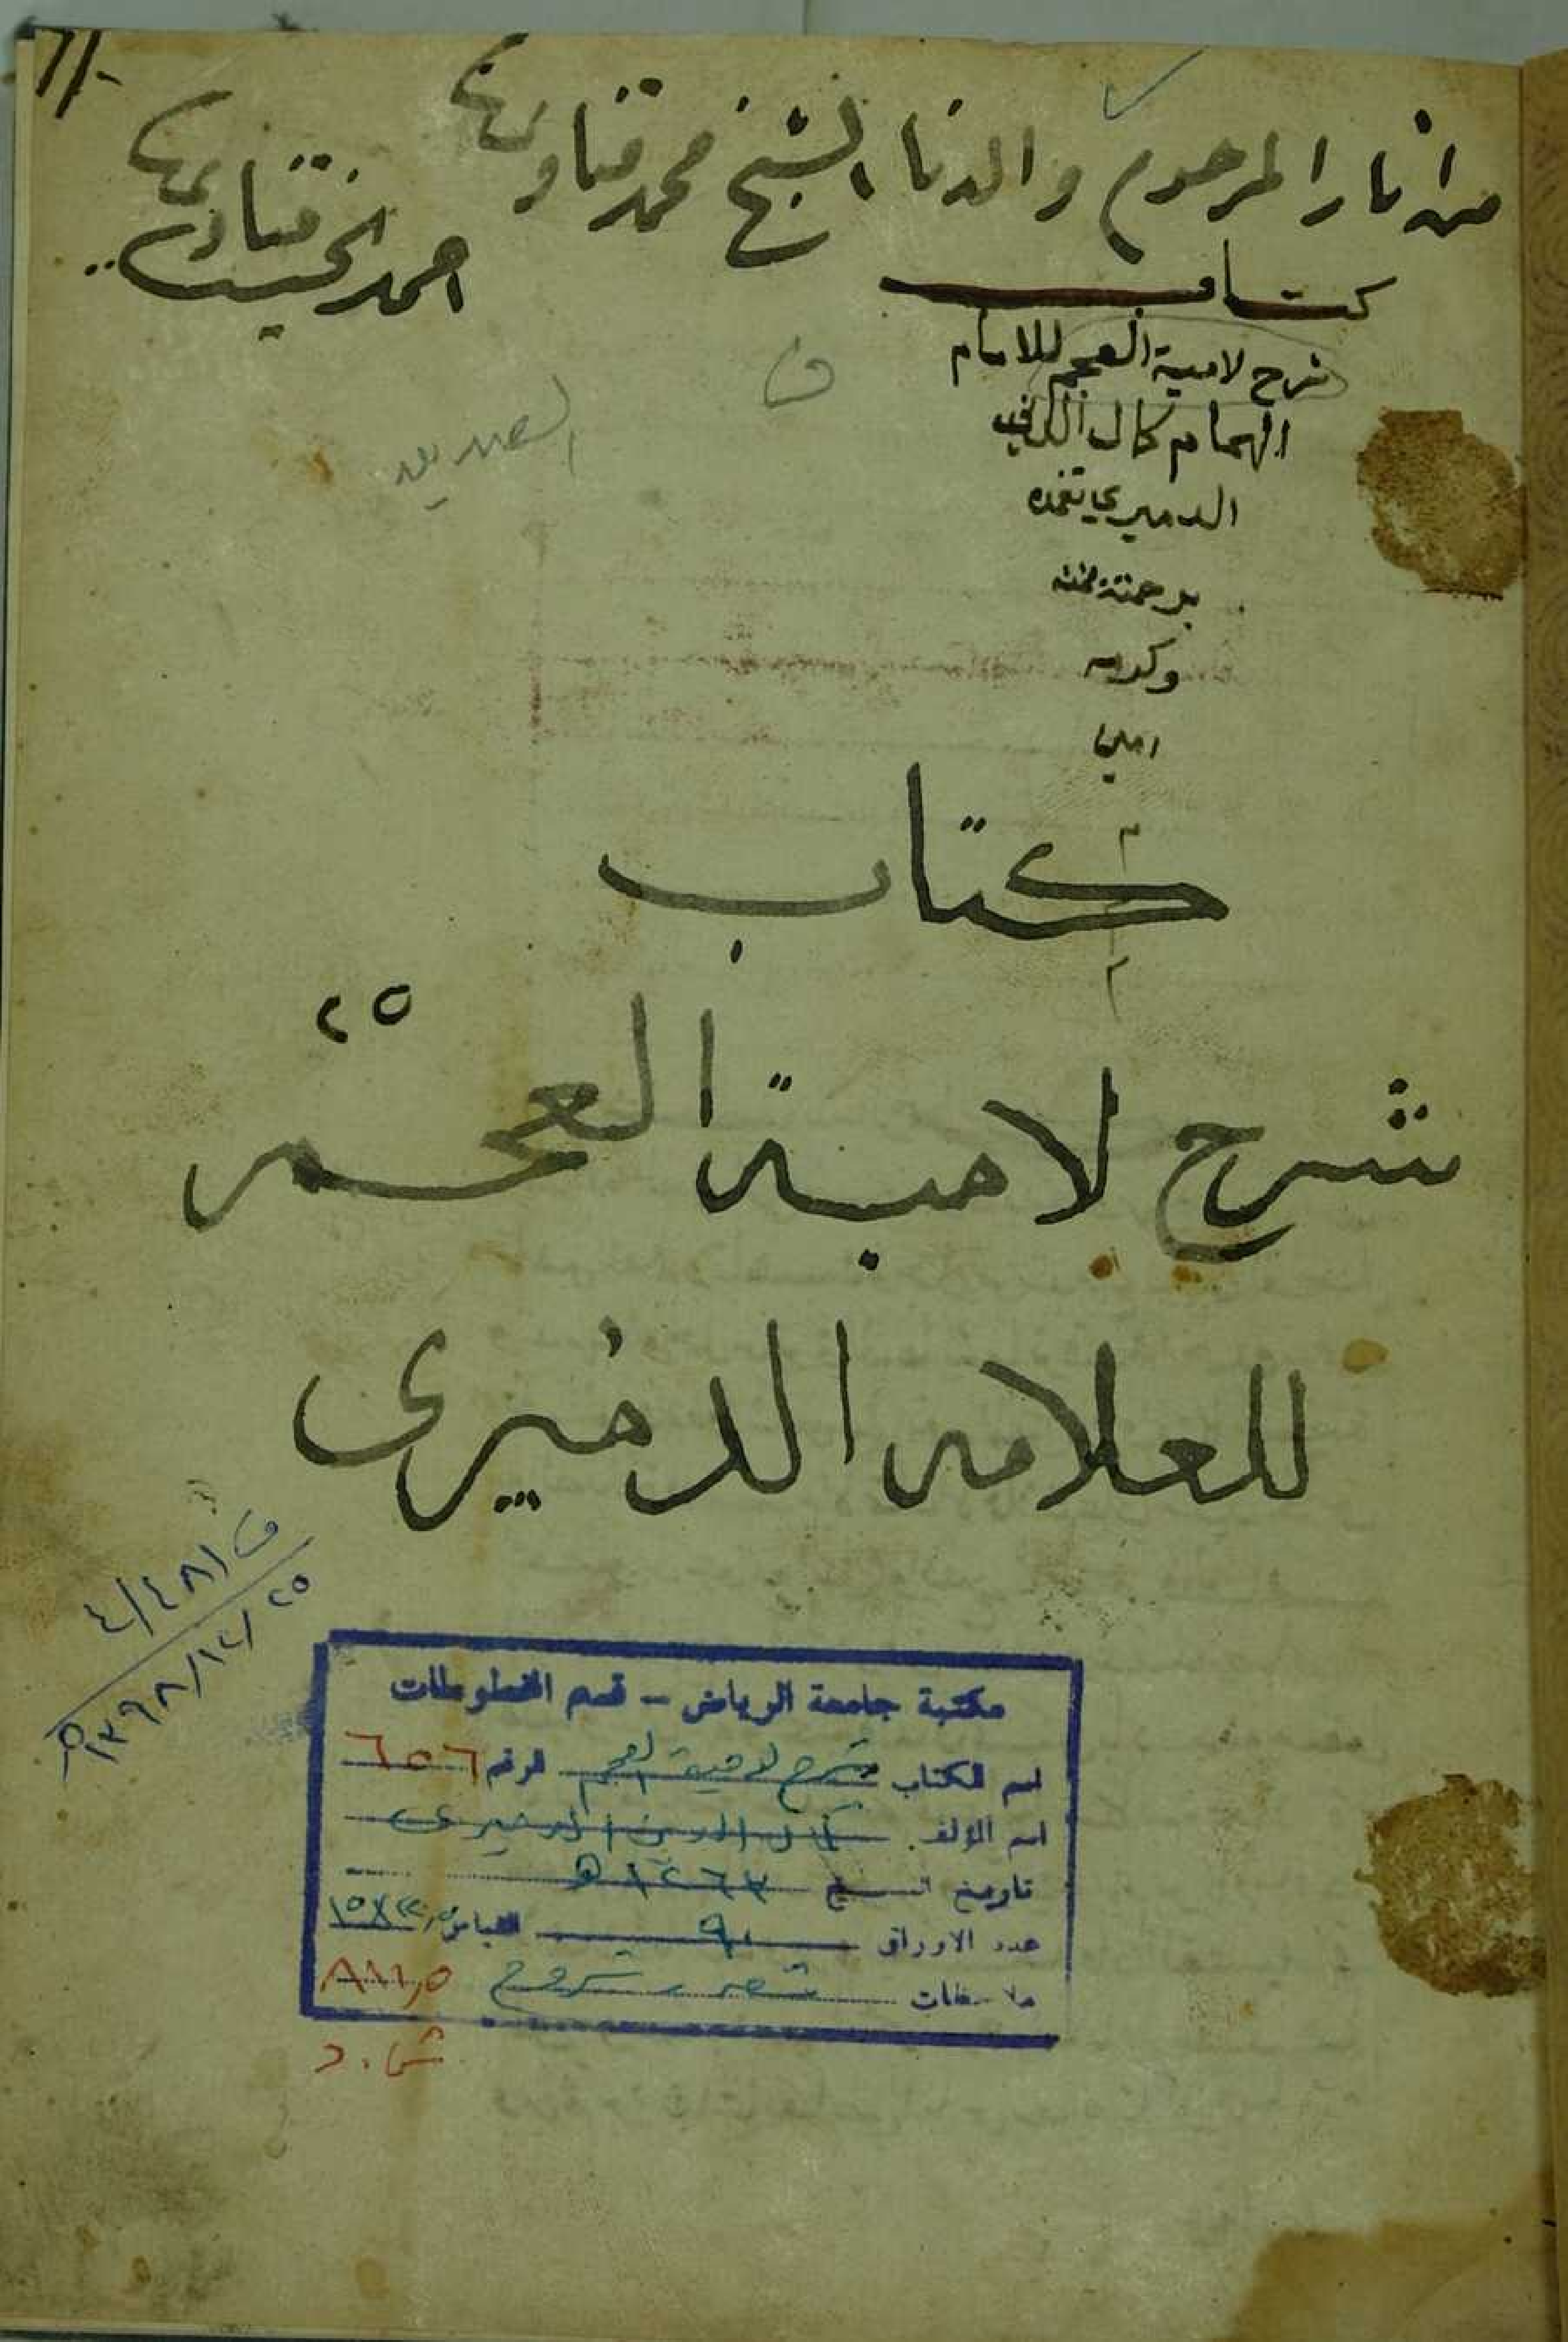 من اثار المرحوم والدنا الشيخ محمد قناوى
احمد قناوى
كتاب
شرح لامية العجم للامام
الهمام كمال الدين
الدميري تغمده
برحمته
وكرمه
امين
كتاب
٢٥
شرح لامية العجم
للعلامه الدميرى
ف ٤/٤٨١
١٣٩٨/١٢/٢٥
مكتبة جامعة الرياض - قسم المخطوطات
اسم الكتاب شرح لامية العجم الرقم ٦٥٦
اسم المؤلف كمال الدين الدميرى
تاريخ النسخ ١٢٦٣ هـ
عدد الاوراق ٩٠ القياس
ملاحظات شعر - شروح ٨١١,٥
ش . د